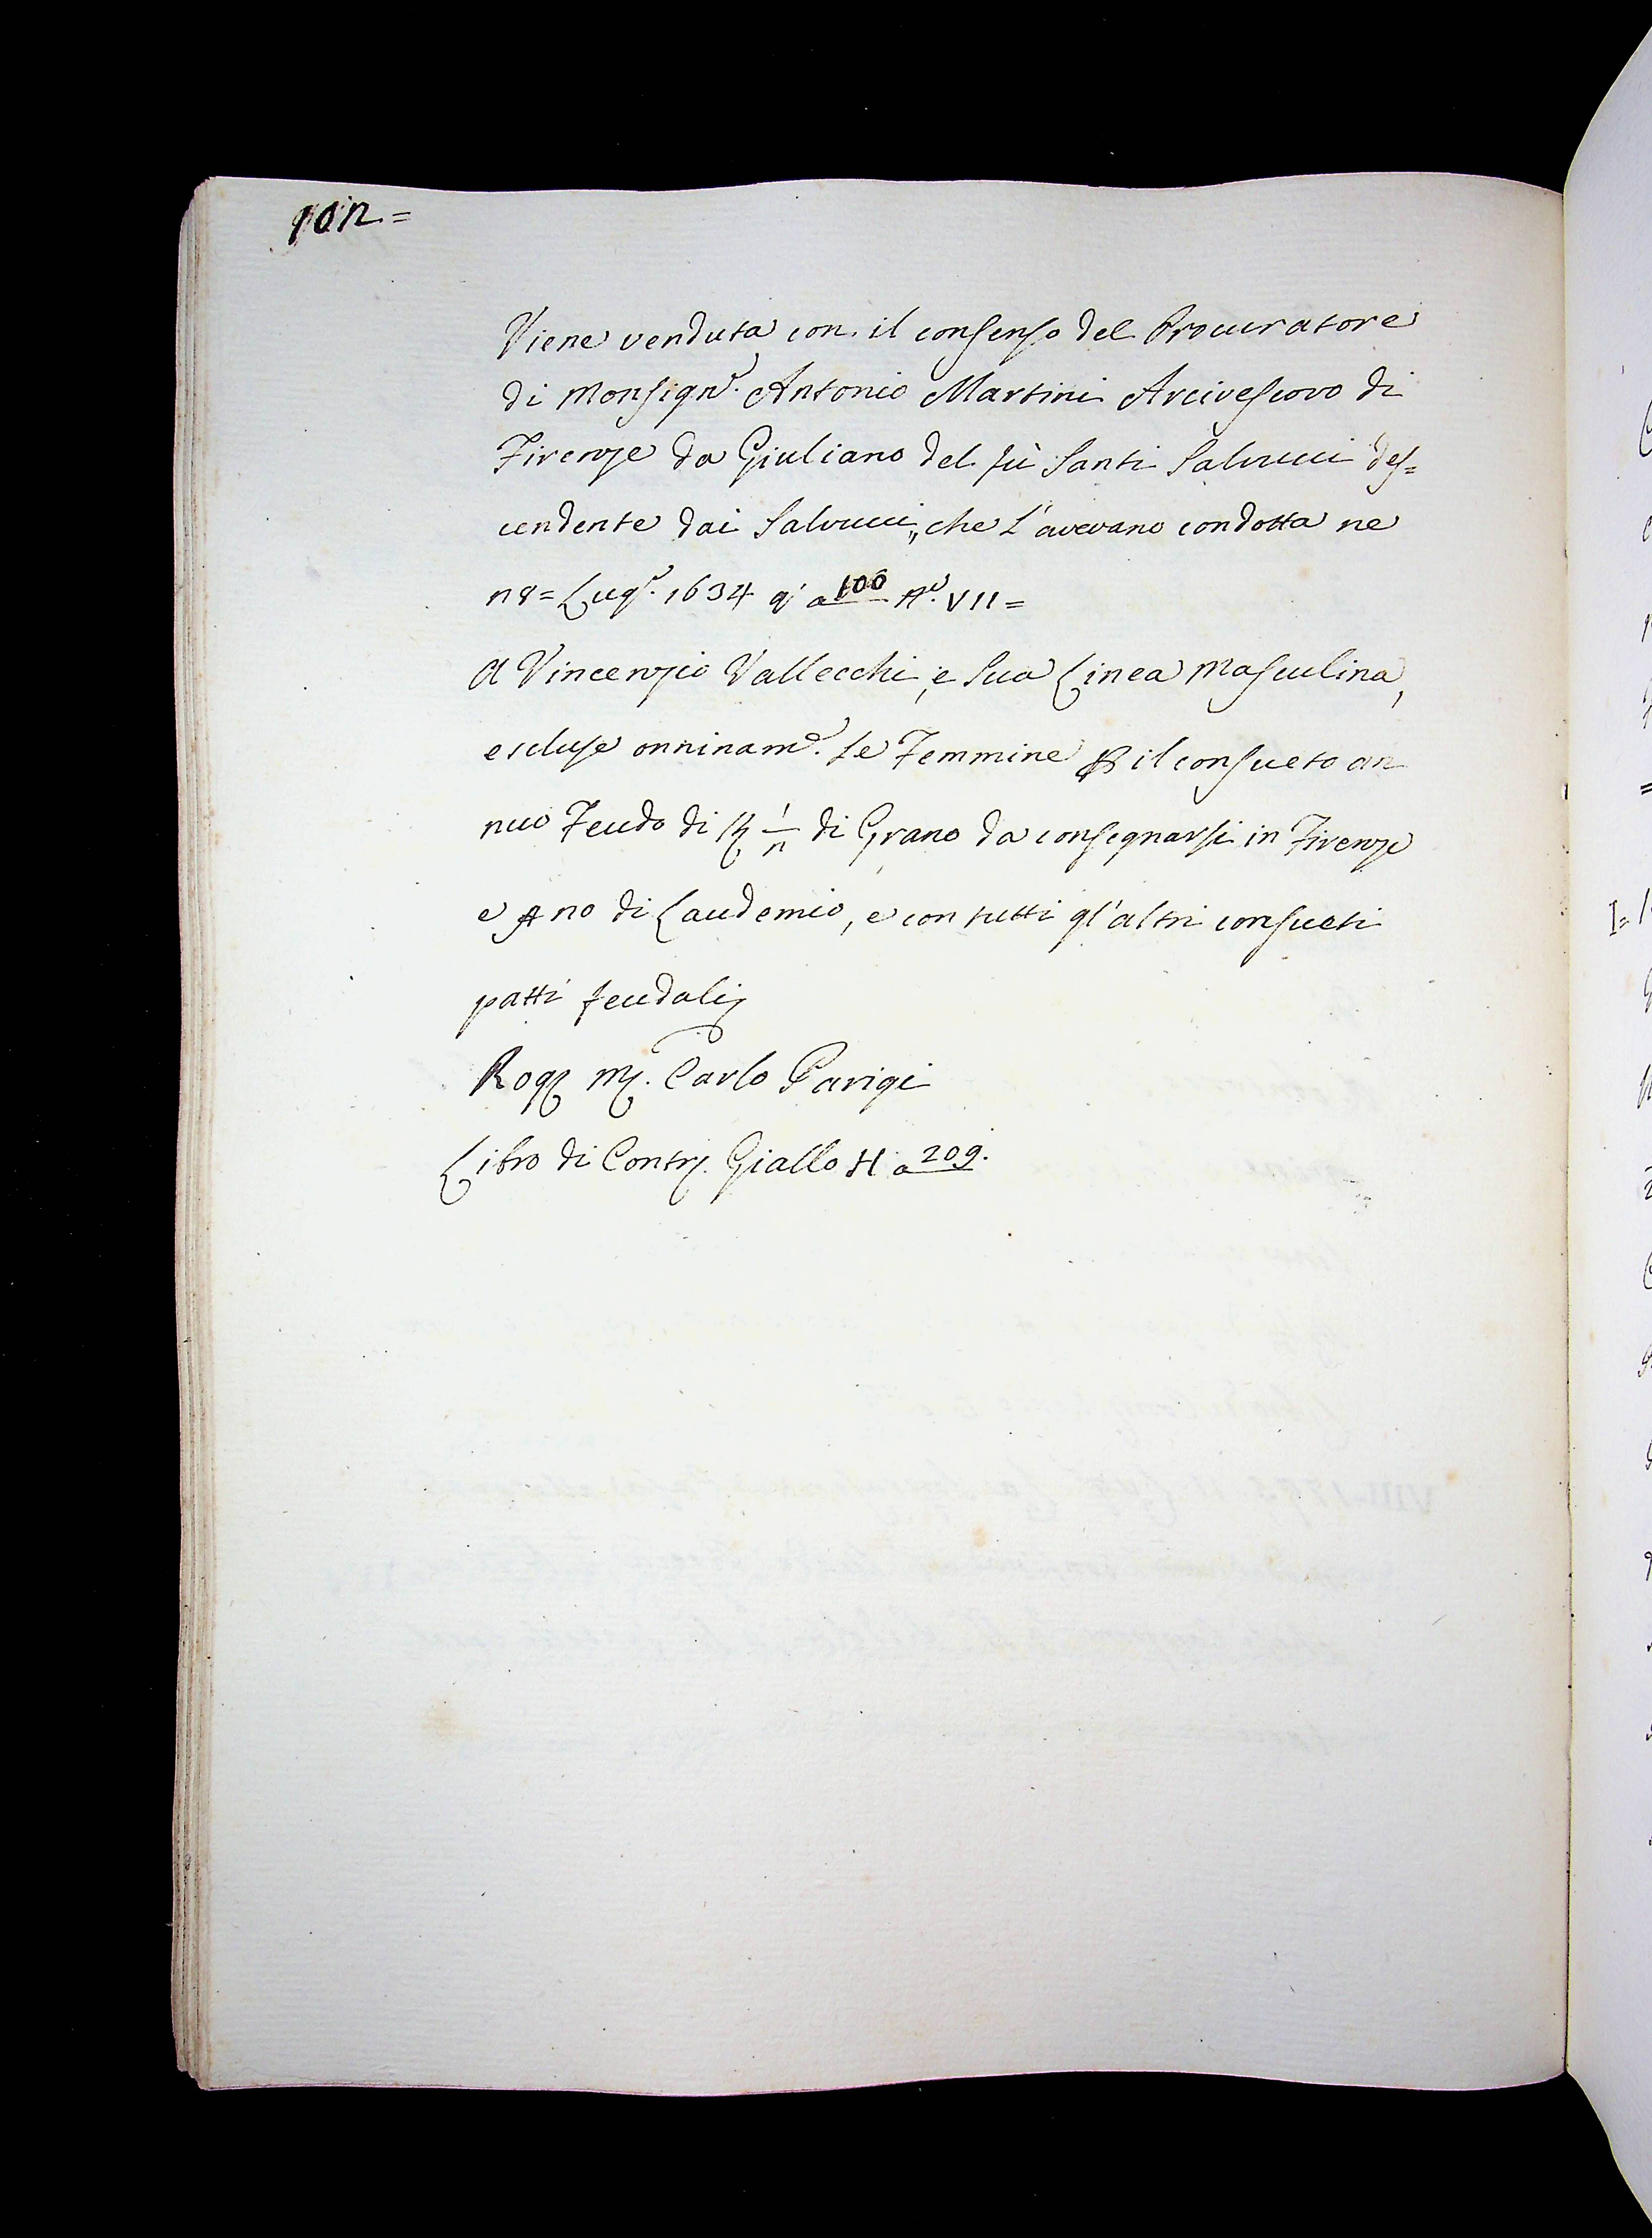 102=
Viene venduta con il consenso del Procuratore
di Monsign.e Antonio Martini Arcivescovo di
Firenze da Giuliano del fù Santi Salvucci des=
cendente dai Salvucci, che l'avevano condotta ne
28= Lug.o 1634 q' a 100 N.o VII=
A Vincenzio Vallecchi, e Sua Linea Masculina,
escluse onninam.e le Femmine il consueto an
nuo Feudo di 1/2 di Grano da consegnarsi in Firenze
e di Laudemio, e con tutti gl'altri consueti
patti feudali
Rog. M. Carlo Parigi
Libro di Contr. Giallo H a 209.